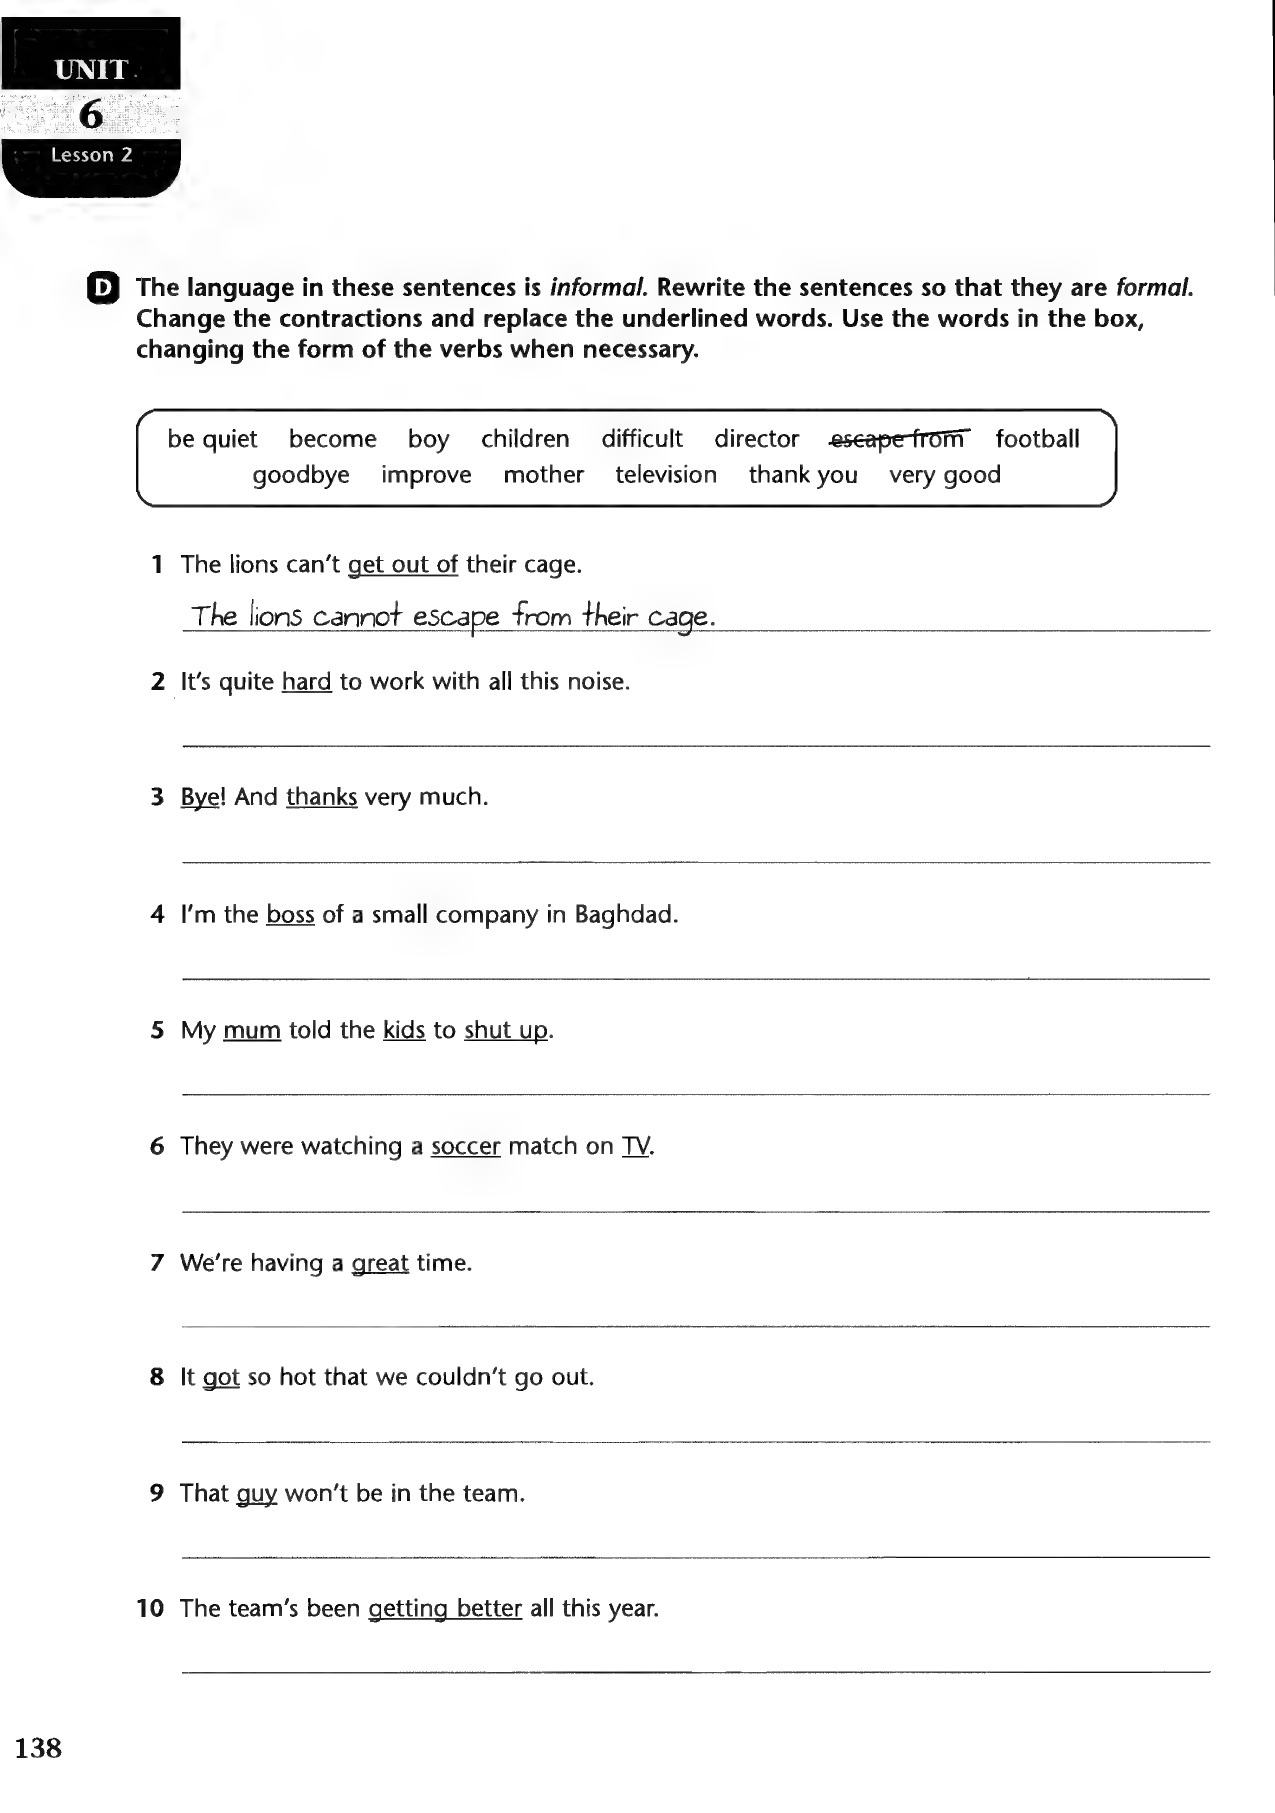 UNIT
6
Lesson 2
D The language in these sentences is informal. Rewrite the sentences so that they are formal.
Change the contractions and replace the underlined words. Use the words in the box,
changing the form of the verbs when necessary.
be quiet become boy children difficult director escape from football
goodbye improve mother television thank you very good
1 The lions can't get out of their cage.
The lions cannot escape from their cage.
2 It's quite hard to work with all this noise.
3 Bye! And thanks very much.
4 I'm the boss of a small company in Baghdad.
5 My mum told the kids to shut up.
6 They were watching a soccer match on TV.
7 We're having a great time.
8 It got so hot that we couldn't go out.
9 That guy won't be in the team.
10 The team's been getting better all this year.
138